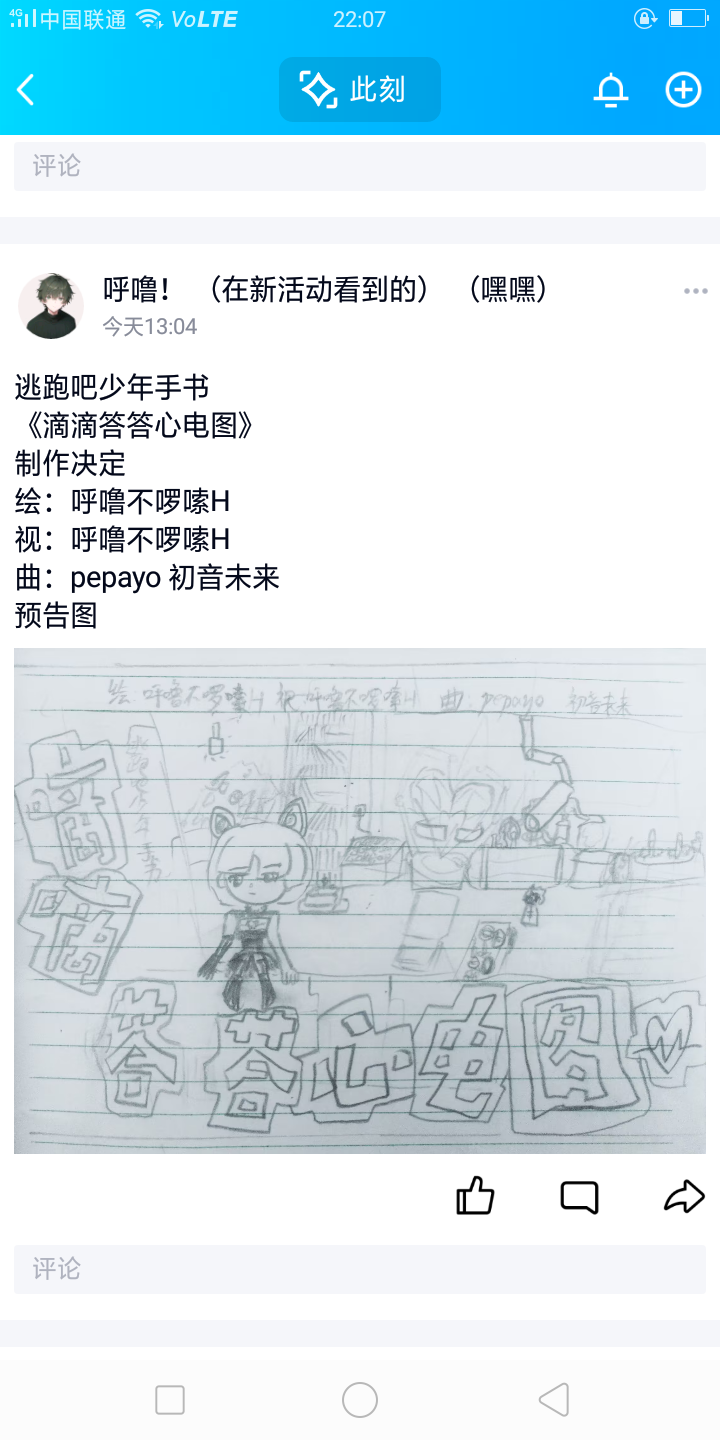 4G 中国联通 VoLTE 22:07
此刻
评论
呼噜！ （在新活动看到的） （嘿嘿）
今天13:04
逃跑吧少年手书
《滴滴答答心电图》
制作决定
绘：呼噜不啰嗦H
视：呼噜不啰嗦H
曲：pepayo 初音未来
预告图
绘:呼噜不啰嗦H 视:呼噜不啰嗦H 曲:pepayo 初音未来
逃跑吧少年手书
滴
滴
答答心电图
评论